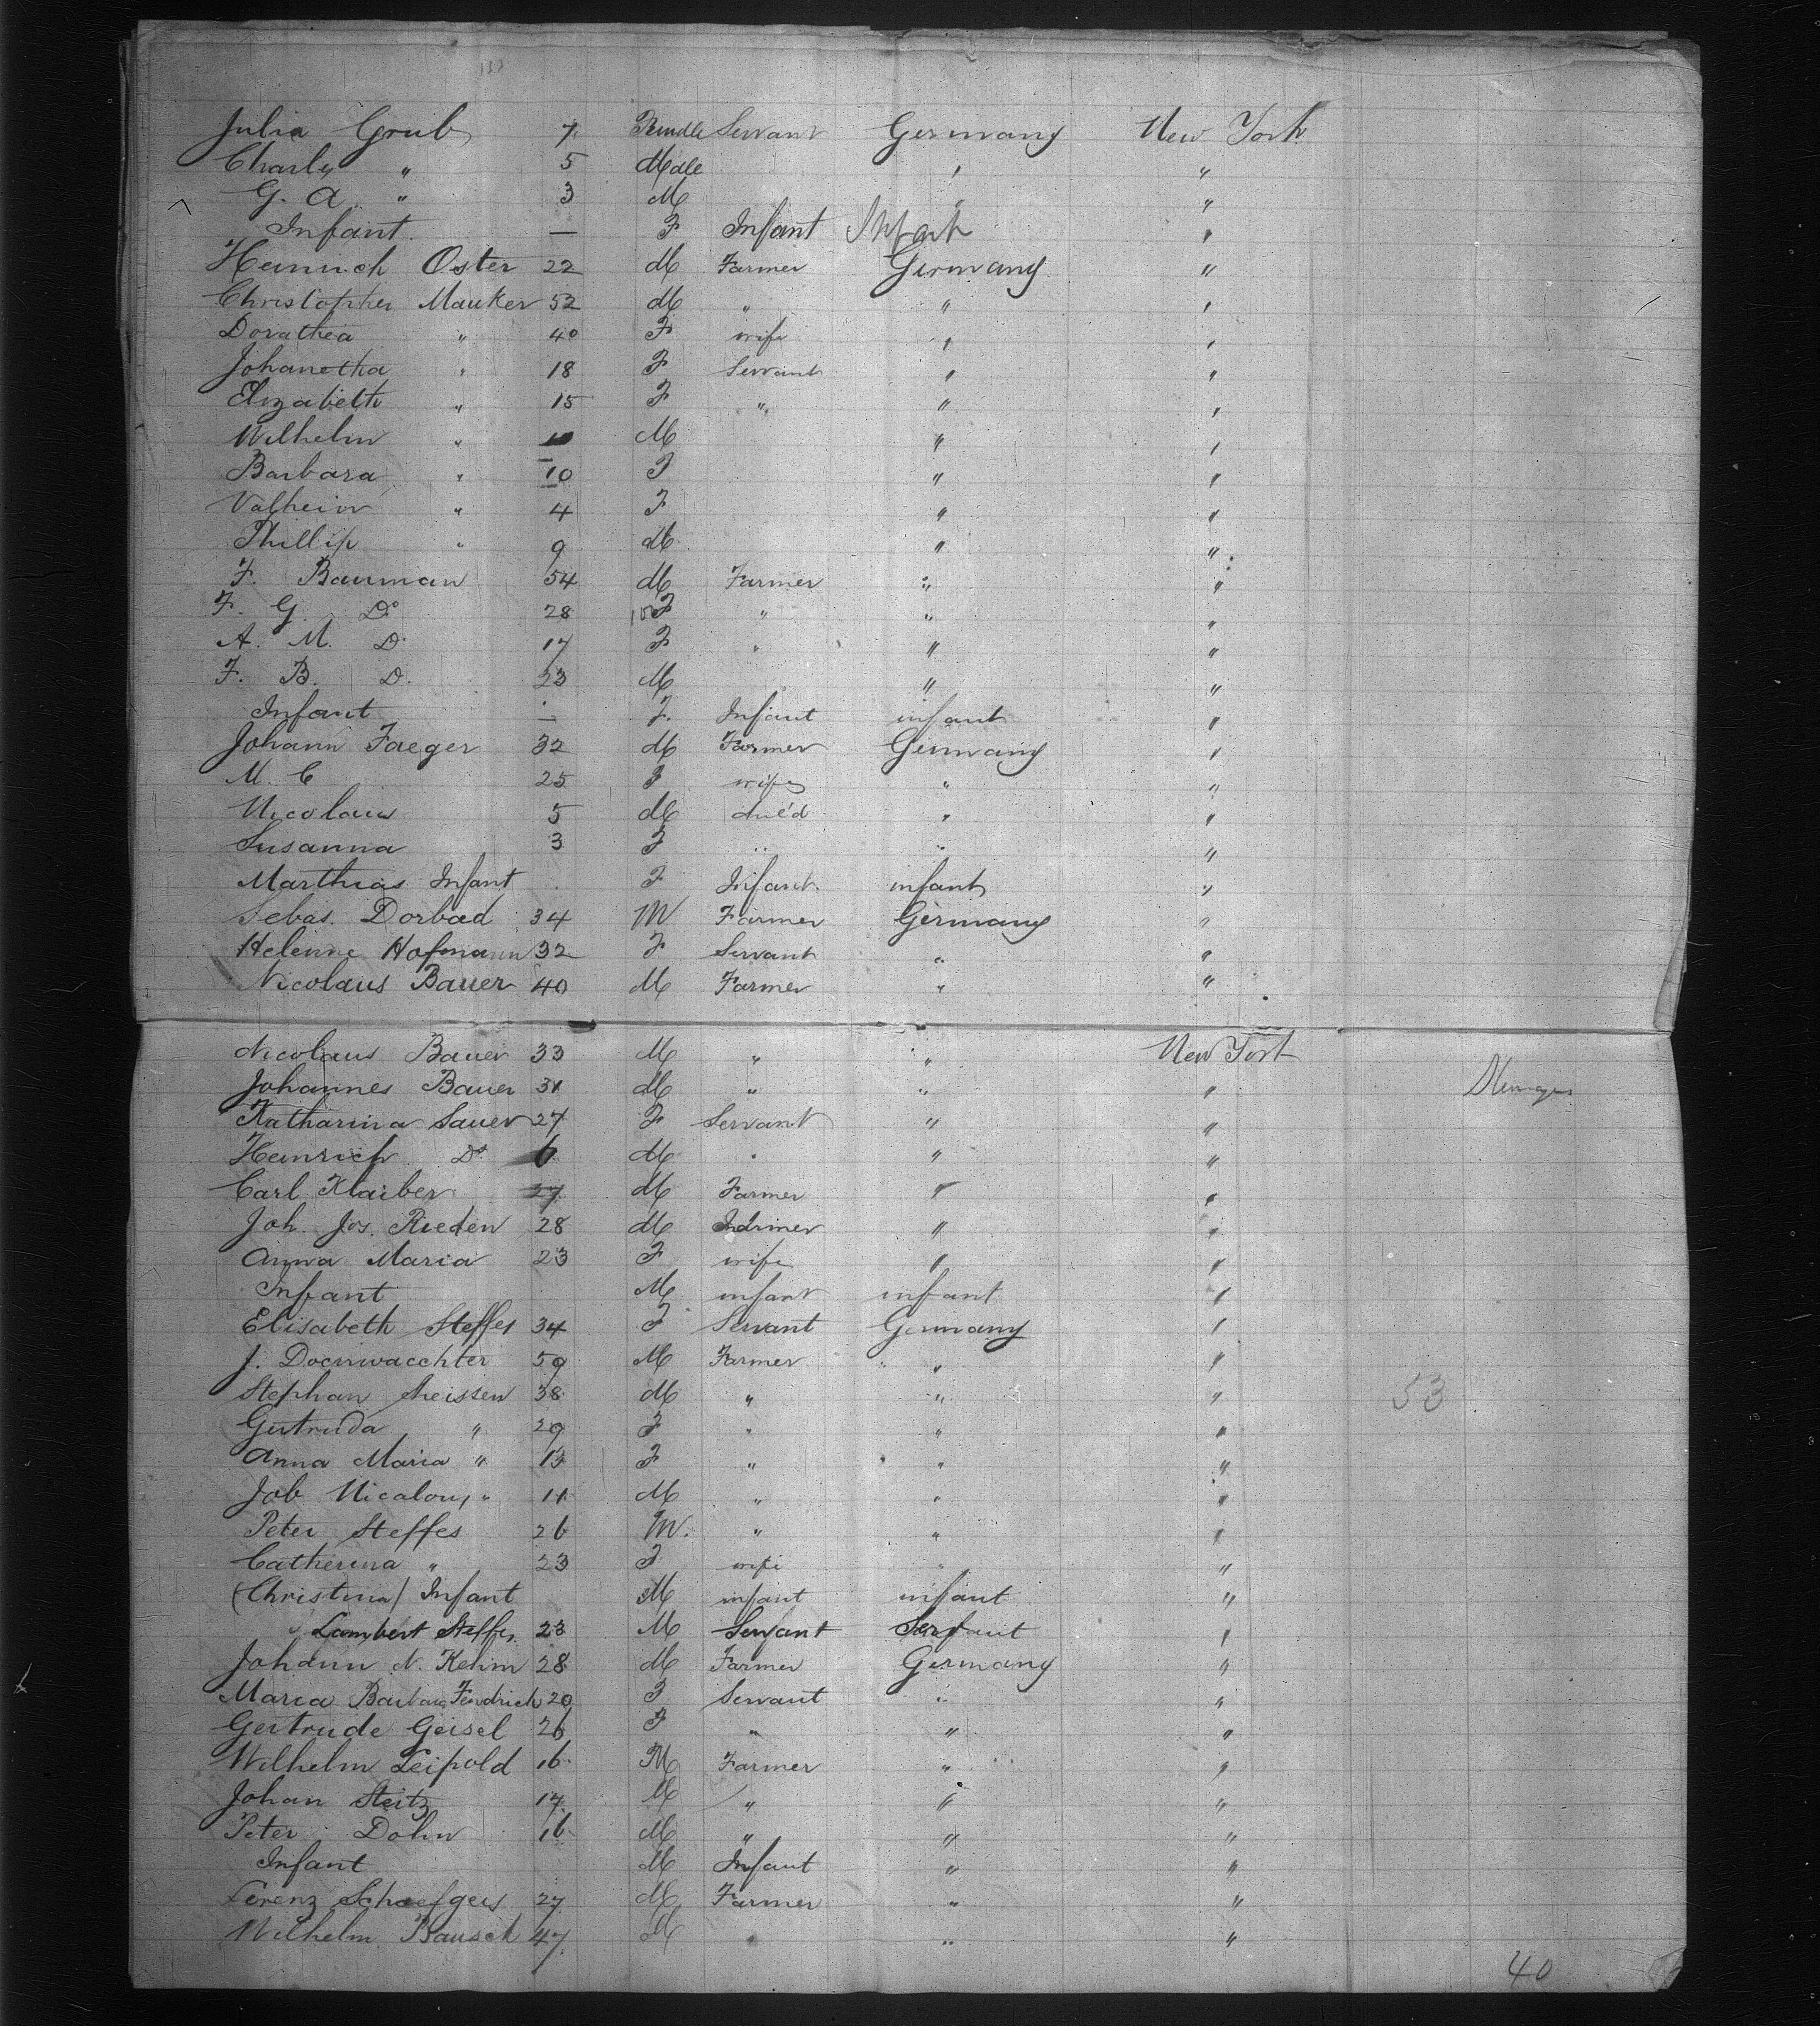 Julia Grub 7 Female Servant Germany New York
Charly " 5 Male " "
G. A. " 3 M " "
Infant — F Infant Infant "
Heinrich Oster 22 M Farmer Germany "
Christopher Mauker 52 M " " "
Dorathea " 40 F wife " "
Johanetha " 18 F Servant " "
Elizabeth " 15 F " " "
Wilhelm " M " "
Barbara " 10 F " "
" 4 F " "
Phillip " 9 M " "
F. Bauman 54 M Farmer " "
F. G. Do 28 F " " "
A. M. D. 17 F " " "
F. B. D. 23 M " " "
Infant — F. Infant infant "
Johann Jaeger 32 M Farmer Germany "
M. C 25 F wife " "
Nicolaus 5 M " "
Susanna 3 F " " "
Marthias Infant F Infant infant "
Sebas. Dorbad 34 M Farmer Germany "
Helenne Hofmann 32 F Servant " "
Nicolaus Bauer 40 M Farmer " "
Nicolaus Bauer 33 M " " New York
Johannes Bauer 31 M " " "
Katharina Sauer 27 F Servant " "
Heinrich Do 6 M " " "
Carl Klaiber 27 M Farmer " "
Joh. Jos. Rieden 28 M " "
Anna Maria 23 F wife " "
Infant M infant infant "
Elisabeth Steffes 34 F Servant Germany "
J. Doerrwaechter 59 M Farmer " "
Stephan Theissen 38 M " " " 53
Gertruda " 29 F " " "
Anna Maria " 13 F " " "
Job Nicalous " 11 M " " "
Peter Steffes 26 M. " " "
Catherina " 23 F wife " "
(Christina) Infant M infant infant "
Lambert Steffes 23 M Servant "
Johann N. Kehm 28 M Farmer Germany "
Maria Barbara Fendrich 20 F Servant " "
Gertrude Geisel 26 F " " "
Wilhelm Leipold 16 M Farmer " "
Johan Steitz 17 M " " "
Peter Dohm 16 M " " "
Infant M Infant " "
Lorenz Schaefges 27 M Farmer " "
Wilhelm Bausch 47 M " " "
40